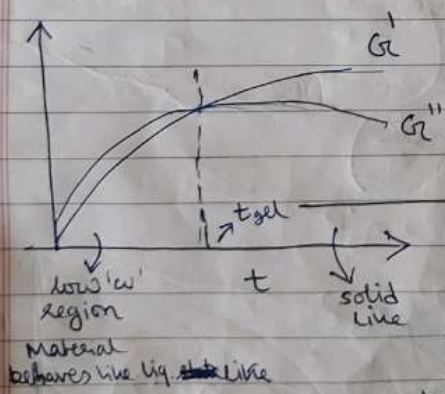 G'
G"
tgel
low 'ω' region
t
solid like
Material
behaves like liq. like